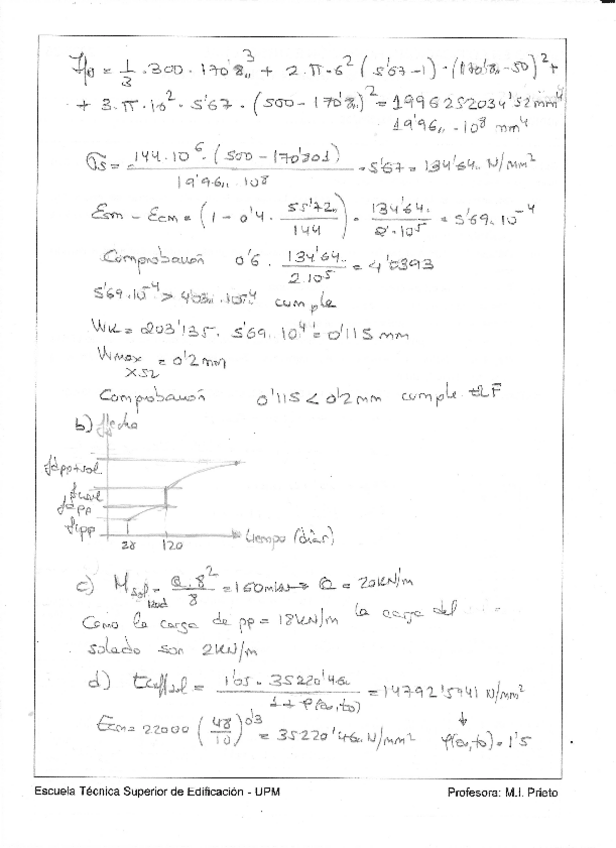 = 1/3 · 300 · 170'8,,³ + 2·π·6² (5'67-1) · (170'8,,-50)² +
+ 3·π·10² · 5'67 · (500-170'8,,)² = 1996252034'52 mm⁴
19'96,, ·10⁸ mm⁴
σs = 144·10⁶ · (500-170'801) / 19'96,, ·10⁸ · 5'67 = 134'64,, N/mm²
Esm - Ecm = (1 - 0'4 · 55'72,, / 144) · 134'64,, / 2·10⁵ = 5'69·10⁻⁴
Comprobación 0'6 · 134'64,, / 2·10⁵ = 4'0393
5'69·10⁻⁴ > 4'03,, ·10⁻⁴ cumple
Wk = 203'135 · 5'69·10⁻⁴ = 0'115 mm
Wmax = 0'2 mm
XS2
Comprobación 0'115 < 0'2 mm cumple ELF
b) flecha
fdpp+sol
fdpp
fipp
28 120 tiempo (días)
c) Msol = Q·8² / 8 = 160 mkN → Q = 20 kN/m
Como la carga de pp = 18 kN/m la carga del
solado son 2 kN/m
d) Eceff,sol = 1'05 · 35220'46,, / 1+φ(∞,to) = 14792'5941 N/mm²
Ecm = 22000 (48/10)^0'3 = 35220'46,, N/mm² φ(∞,to) = 1'5
Escuela Técnica Superior de Edificación - UPM Profesora: M.I. Prieto